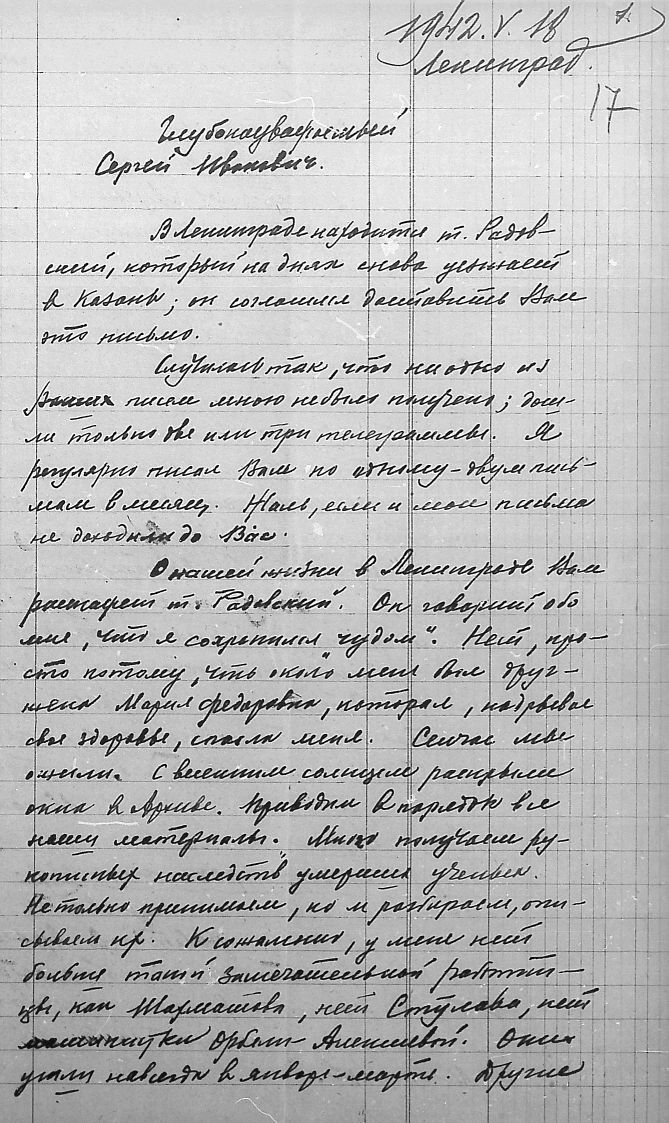 1942.V.18
1.
Ленинград.
17
Глубокоуважаемый
Сергей Иванович.
В Ленинграде находится т. Радов-
ский, который на днях снова уезжает
в Казань; он согласился доставить Вам
это письмо.
Случилось так, что ни одно из
Ваших писем мною не было получено; дош-
ли только две или три телеграммы. Я
регулярно писал Вам по одному-двум пись-
мам в месяц. Жаль, если и мои письма
не доходили до Вас.
О нашей жизни в Ленинграде Вам
расскажет т. Радовский. Он говорит обо
мне, "что я сохранился чудом". Нет, про-
сто потому, что около меня был друг-
жена Мария Федоровна, которая, надрывая
свое здоровье, спасла меня. Сейчас мы
ожили. С весенним солнцем раскрыли
окна в Архиве. Приводим в порядок все
наши материалы. Много получаем ру-
кописных наследств умерших ученых.
Не только принимаем, но и разбираем, опи-
сываем их. К сожалению, у меня нет
больше такой замечательной работни-
цы, как Шахматова, нет Стулова, нет
Орбели-Алексеевой. Они
ушли навсегда в январе-марте. Другие